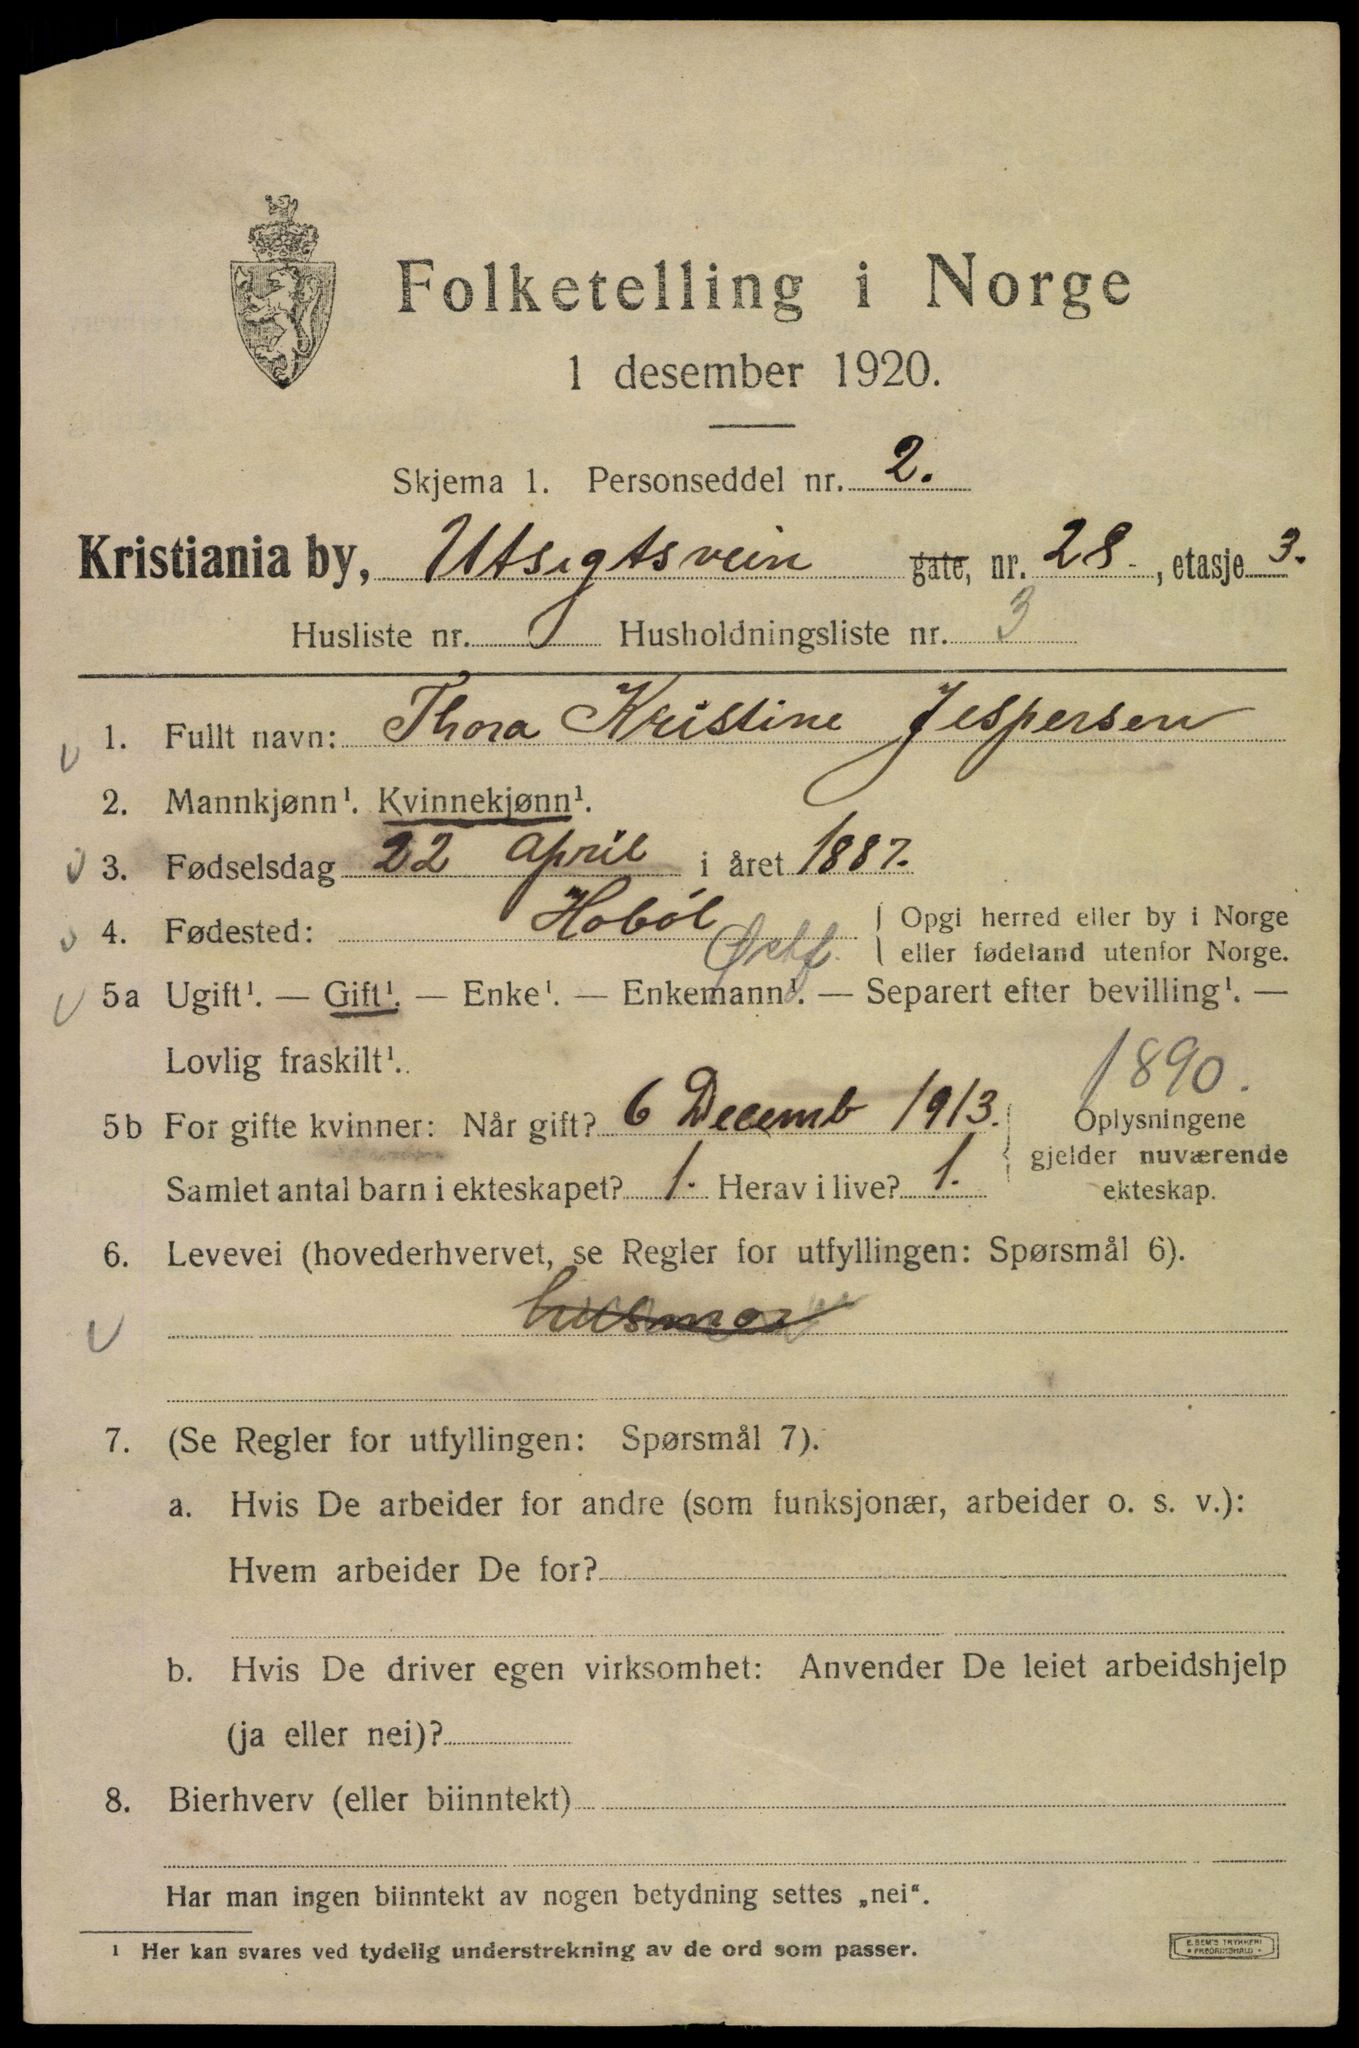 Folketelling i Norge
1 desember 1920.
Skjema 1. Personseddel nr. 2.
Kristiania by, Utsigtsvein gate, nr. 28, etasje 3.
Husliste nr. Husholdningsliste nr. 3
1. Fullt navn: Thora Kristine Jespersen
2. Mannkjønn¹. Kvinnekjønn¹.
3. Fødselsdag 22 april i året 1887.
4. Fødested: Hobøl Østf. { Opgi herred eller by i Norge
eller fødeland utenfor Norge.
5a Ugift¹. — Gift¹. — Enke¹. — Enkemann¹. — Separert efter bevilling¹. —
Lovlig fraskilt¹.
1890.
5b For gifte kvinner: Når gift? 6 Decemb 1913. { Oplysningene
gjelder nuværende
Samlet antal barn i ekteskapet? 1. Herav i live? 1. ekteskap.
6. Levevei (hovederhvervet, se Regler for utfyllingen: Spørsmål 6).
husmor
7. (Se Regler for utfyllingen: Spørsmål 7).
a. Hvis De arbeider for andre (som funksjonær, arbeider o. s. v.):
Hvem arbeider De for?
b. Hvis De driver egen virksomhet: Anvender De leiet arbeidshjelp
(ja eller nei)?
8. Bierhverv (eller biinntekt)
Har man ingen biinntekt av nogen betydning settes „nei“.
¹ Her kan svares ved tydelig understrekning av de ord som passer.
E. SEM'S TRYKKERI
FREDRIKSHALD